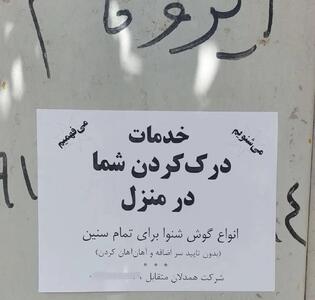 می‌شنویم
می‌فهمیم
خدمات
درک‌کردن شما
در منزل
انواع گوش شنوا برای تمام سنین
(بدون تایید سر اضافه و آهان‌آهان کردن)
* * *
شرکت همدلان متقابل